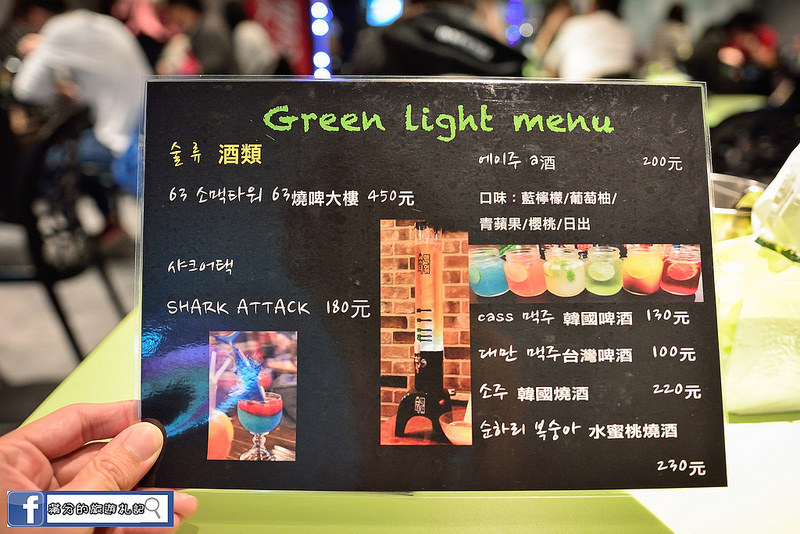 Green light menu
술류 酒類
63 소맥타워 63燒啤大樓 450元
샤크어택
SHARK ATTACK 180元
에이주 a酒 200元
口味：藍檸檬/葡萄柚/
青蘋果/櫻桃/日出
cass 맥주 韓國啤酒 130元
대만 맥주台灣啤酒 100元
소주 韓國燒酒 220元
순하리 복숭아 水蜜桃燒酒
230元
f 滿分的旅遊札記